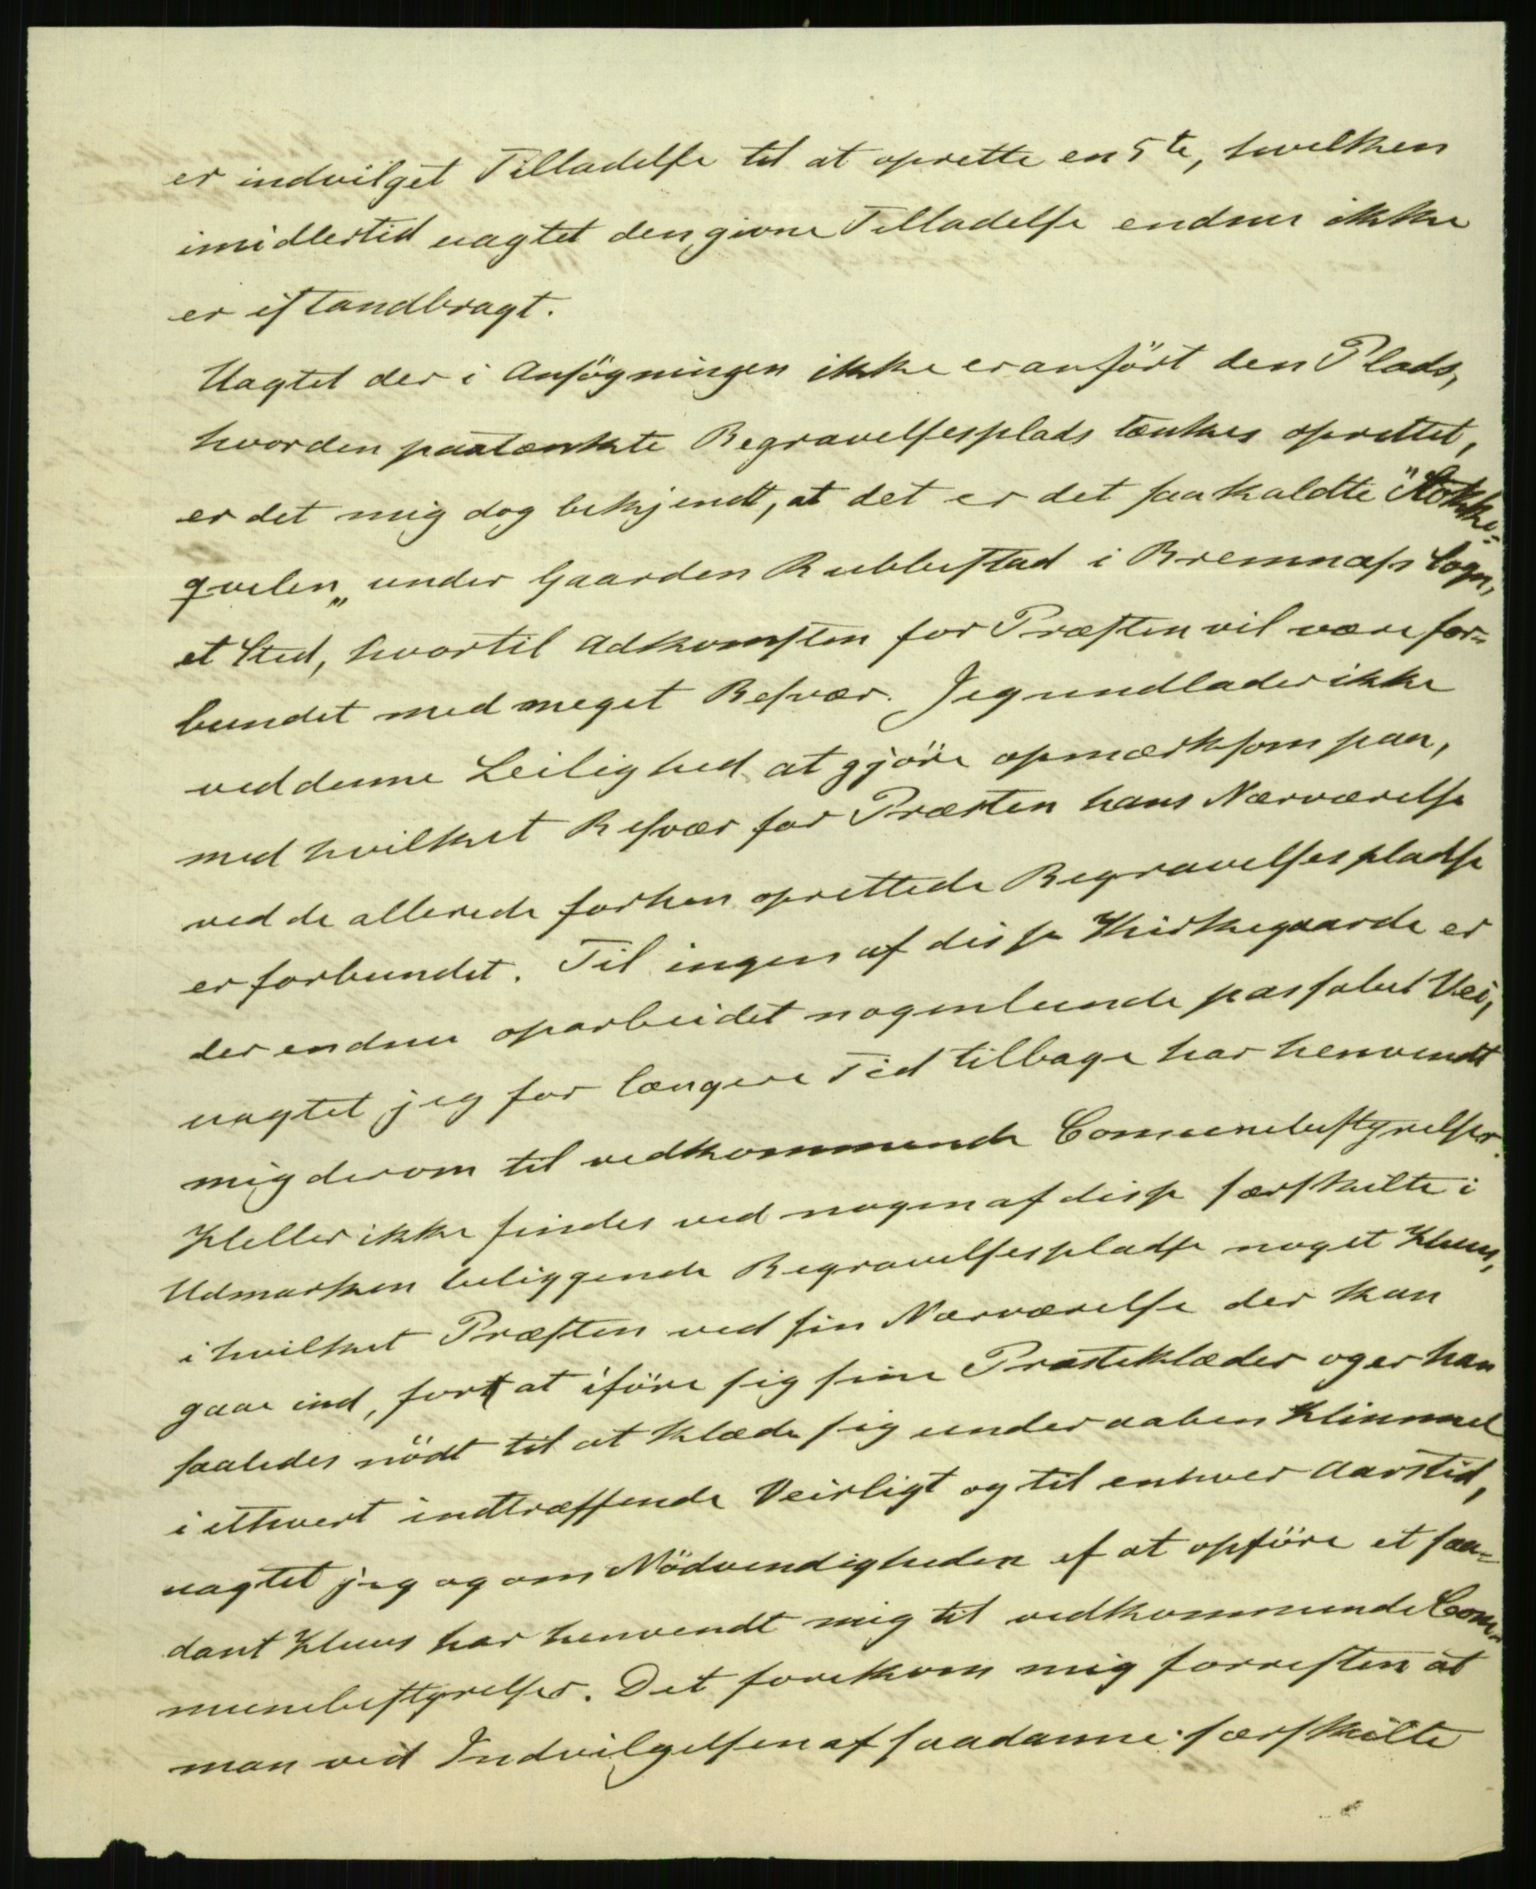 er indvilget Tilladelse til at oprette en 5te, hvilken
imidlertid uagtet den givne Tilladelse endnu ikke
er istandbragt.
Uagtet der i Ansögningen ikke er anfört den Plads,
hvor den paatænkte Begravelsesplads tænkes oprettet,
er det mig dog bekjendt, at det er det saakaldte "Stokke-
qvilen„ under Gaarden Rubbestad i Bremnæs Sogn,
et Sted, hvortil Adkomsten for Præsten vil være for-
bundet med meget Besvær. Jeg undlader ikke
ved denne Leilighed at gjöre opmærksom paa,
med hvilket Besvær for Præsten hans Nærværelse
ved de allerede forhen oprettede Begravelsespladse
er forbundet. Til ingen af disse Kirkegaarde er
der endnu oparbeidet nogenlunde passabel Vei,
uagtet jeg for længere Tid tilbage har henvendt
mig derom til vedkommende Communebestyrelser.
Heller ikke findes ved nogen af disse særskilte i
Udmarken beliggende Begravelsespladse noget Huus,
i hvilket Præsten ved sin Nærværelse der kan
gaae ind, for at iföre sig sine Præsteklæder og er han
saaledes nödt til at klæde sig under aaben Himmel
i ethvert indtræffende Veirligt og til enhver Aarstid,
uagtet jeg og om Nödvendigheden af at opföre et saa-
dant Huus har henvendt mig til vedkommende Com-
munebestyrelser. Det forekom mig forresten at
man ved Indvilgelsen af saadanne særskilte